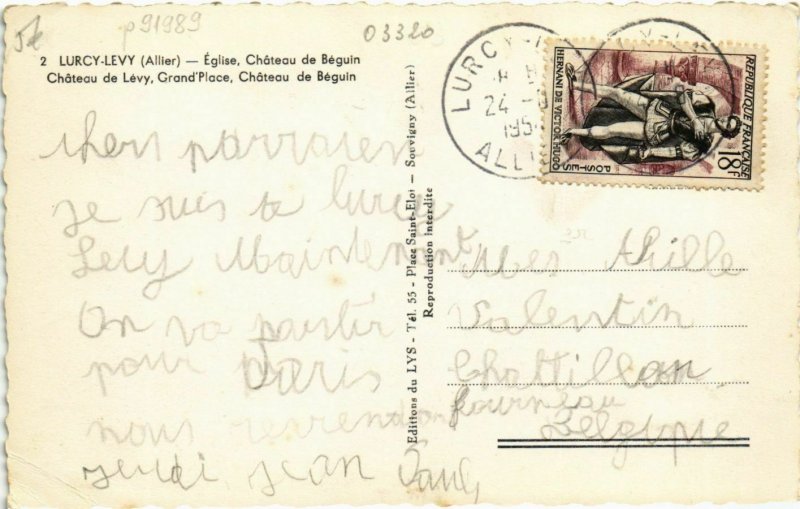 p91989
03320
2 LURCY-LEVY (Allier) — Église, Château de Béguin
Château de Lévy, Grand'Place, Château de Béguin
chers parraien
je suis a lurcy
Levy Maintenant
On va partir
pour Paris
nous reverendon
jeudi jean Paul
Editions du LYS - Tél. 55 - Place Saint-Eloi - Souvigny (Allier)
Reproduction interdite
LURCY-L
24
195
ALLI
REPUBLIQUE FRANÇAISE
HERNANI DE VICTOR HUGO
POSTES
18F
Achille
Valentin
Chattillon
fourneau
Belgique